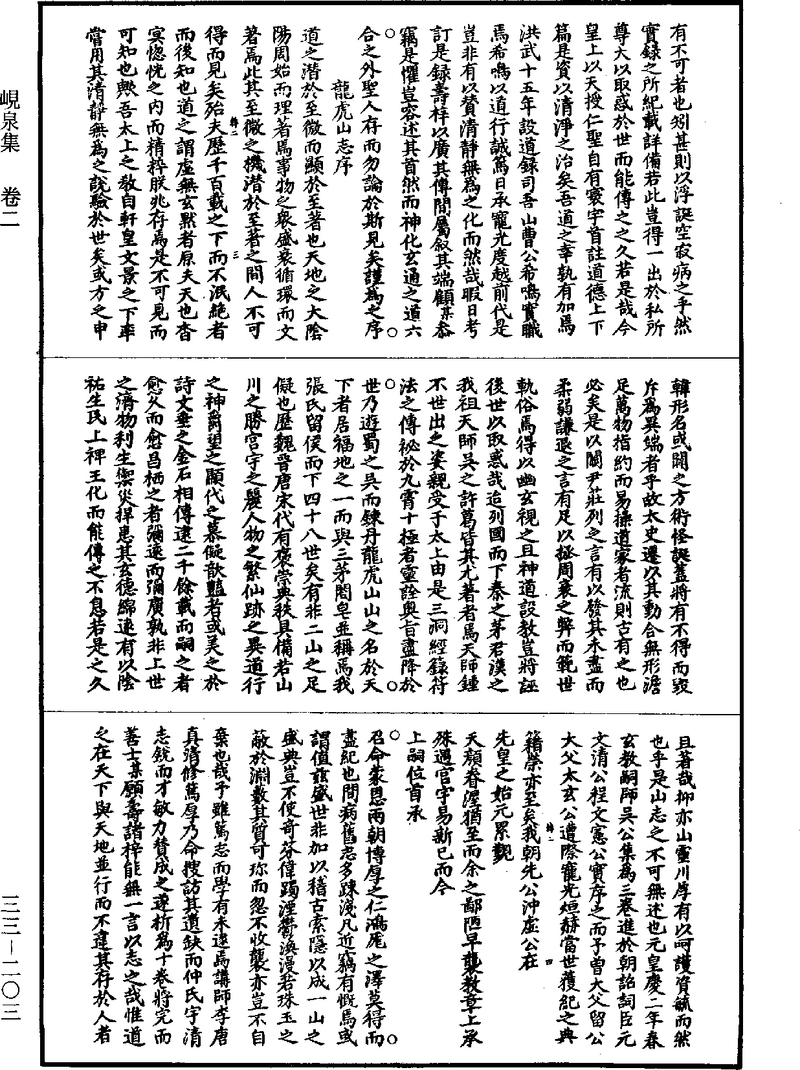 峴泉集　卷二
有不可者也矧甚則以浮誕空寂病之乎然
實錄之所紀載詳備若此豈得一出於私所
尊大以取惑於世而能傳之之久若是哉今
皇上以天授仁聖自有寰宇首註道德上下
篇是資以清淨之治矣吾道之幸孰有加焉
洪武十五年設道錄司吾山曹公希鳴實職
焉希鳴以道行誠篤日承寵光度越前代是
豈非有以贊清靜無為之化而然哉暇日考
訂是錄壽梓以廣其傳間屬叙其端顧某忝
竊是懼豈容述其首然而神化玄通之道六
合之外聖人存而勿論於斯見矣謹為之序
龍虎山志序
道之潛於至微而顯於至著也天地之大陰
陽周始而理著焉事物之衆盛衰循環而文
著焉此其至微之機潛於至著之間人不可
得而見矣殆夫歷千百載之下而不泯絶者
而後知也道之謂虛無玄默者原夫天也杳
冥惚恍之內而精粹朕兆存焉是不可見而
可知也歟吾太上之教自軒皇文景之下率
嘗用其清靜無為之說驗於世矣或方之申
韓形名或闢之方術怪誕蓋將有不得而毀
斥為異端者乎故太史遷以其動合無形澹
足萬物指約而易操道家者流則古有之也
必矣是以關尹莊列之言有以發其未盡而
柔弱謙退之言有足以拯周衰之弊而範世
軌俗焉得以幽玄視之且神道設教豈將誣
後世以取惑哉迨列國而下秦之茅君漢之
我祖天師吳之許葛皆其尤著者焉天師鍾
不世出之姿親受于太上由是三洞經籙符
法之傳祕於九霄十極者靈詮奧旨盡降於
世乃遊蜀之吳而鍊丹龍虎山山之名於天
下者居福地之一而與三茅閤皂並稱焉我
張氏留侯而下四十八世矣有非二山之足
儗也歷魏晉唐宋代有褒崇典秩具備若山
川之勝宮宇之麗人物之繁仙跡之異道行
之神爵望之顯代之慕儗歆豔者或美之於
詩文垂之金石相傳逮二千餘載而嗣之者
愈久而愈昌栖之者彌遠而彌廣孰非上世
之濟物利生禦災捍患其玄德綿遠有以陰
祐生民上裨王化而能傳之不息若是之久
且著哉抑亦山靈川厚有以呵護資毓而然
也乎是山志之不可無述也元皇慶二年春
玄教嗣師吳公集為三卷進於朝詔詞臣元
文清公程文憲公實存之而予曾大父留公
大父太玄公遭際寵光烜赫當世獲紀之典
籍榮亦至矣我朝先公沖虛公在
先皇之始元累覲
天顏眷渥猶至而余之鄙陋早襲教章上承
殊遇官宇易新已而今
上嗣位首承
召命蒙恩兩朝博厚之仁鴻厖之澤莫得而
盡紀也間病舊志多踈淺凡近竊有慨焉或
謂值茲盛世非加以稽古索隱以成一山之
盛典豈不使奇芬偉躅湮鬱渙漫若珠玉之
蔽於淵藪其質可珍而忽不收襲亦豈不自
棄也哉予雖篤志而學有未逮焉講師李唐
真清修篤厚乃命搜訪其遺缺而仲氏宇清
志銳而才敏力贊成之遂析為十卷將完而
善士某願壽諸梓能無一言以志之哉惟道
之在天下與天地並行而不違其存於人者
三三—二〇三